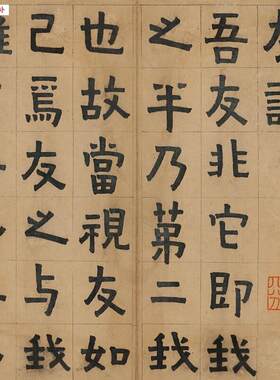 吾友非它即我
之半乃苐二我
也故當視友如
己焉友之与我